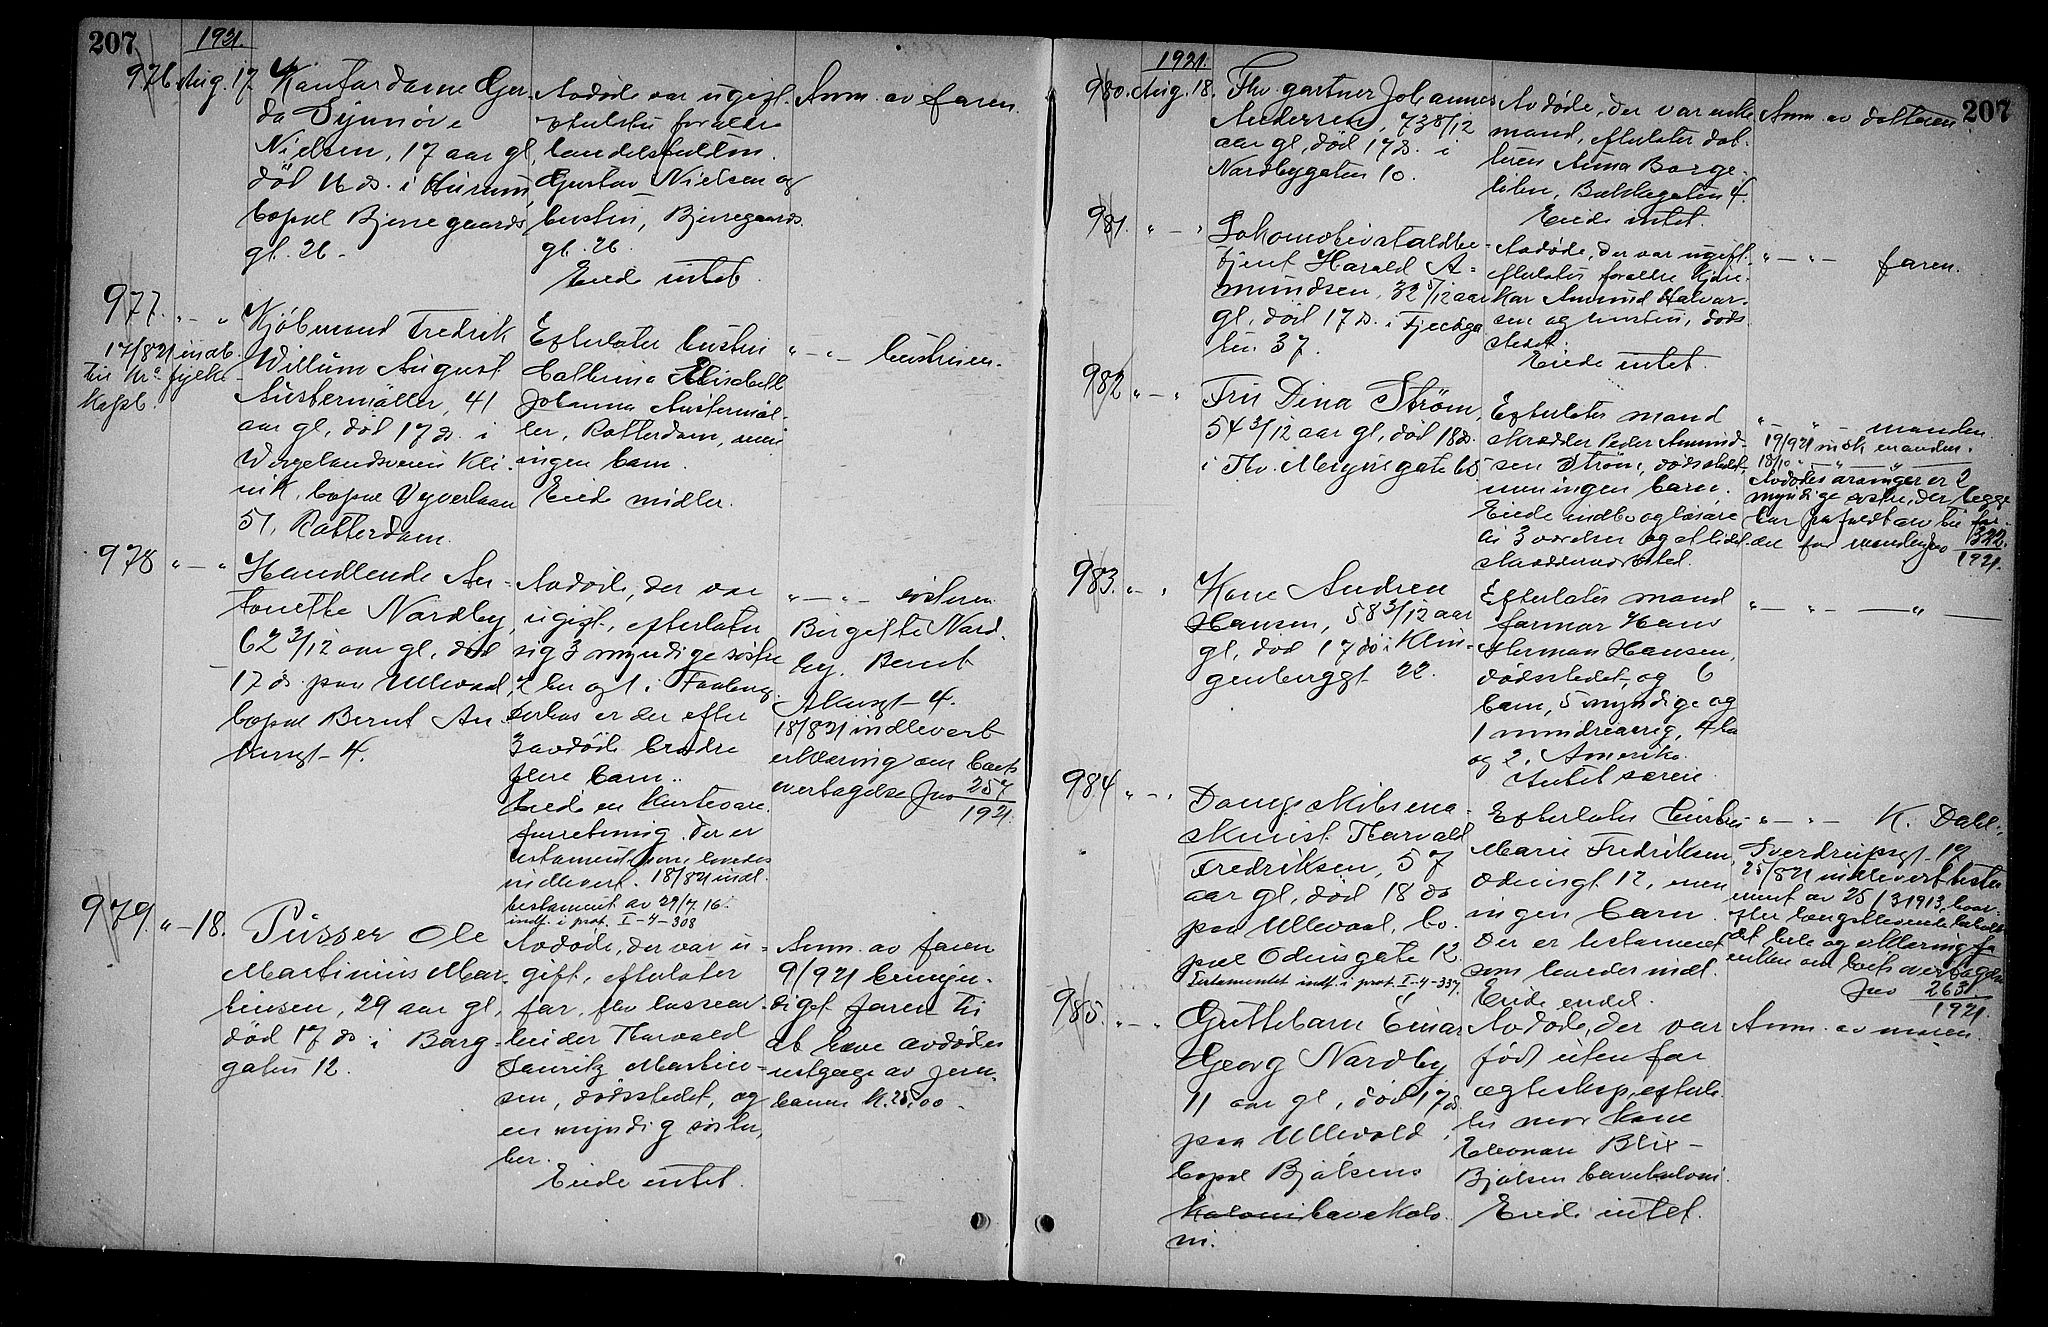 207
1921.
976. Aug. 17.
Kontordame Ger-
da Synnøve
Nielsen, 17 aar gl,
død 16 ds. i Hurum,
bopæl Bjerregaards
gt. 26.
Avdøde var ugift.
efterlater forældre
handelsfuldm.
Gustav Nielsen og
hustru, Bjerregaards
gt. 26.
Eiede intet.
Anm. av faren.
977. " — "
17/8 21 indb.
til Kr.a fylke
Kjøbmand Fredrik
Willum August
Austermøller, 41
aar gl, død 17 ds. i
Wergelandsveien Kli-
nik, bopæl
51, Rotterdam.
Efterlater hustru
Cathrina Elisabeth
Johanna Austermøl-
ler, Rotterdam, men
ingen barn.
Eiede midler.
" — " — hustruen.
978 " — "
Handlende An-
tonette Nordby,
62 3/12 aar gl, død
17 ds. paa Ullevaal,
bopæl Bernt An-
kersgt. 4.
Avdøde, der var
ugift, efterlater
sig 3 myndige søstre
2 her og 1 i Faaberg.
Derhos er der efter
3 avdøde brødre
flere barn.
Eiede en kortevare-
forretning. Der er
testament som loves
indlevert. 18/8 21 indl.
testament av 29/7 16.
indf. i prot. I-4-308
" — " — søsteren
Birgitte Nord-
by, Bernt
Ankersgt. 4.
18/8 21 indlevert
erklæring om boets
overtagelse Jno 257
1921.
979. " — 18.
Pusser Ole
Martinius Mar-
tinsen, 29 aar gl,
død 17 ds. i Borg-
gaten 12.
Avdøde, der var u-
gift, efterlater
far, fhv.
Thorvald
Lauritz Martin-
sen, dødsstedet, og
en myndig søster,
her.
Eiede intet.
Anm. av faren
9/9 21 bemyn-
diget faren til
at heve avdødes
utgage av Jern-
banen K. 25,00.
207
1921.
980. Aug. 18.
Fhv. gartner Johannes
Andersen, 73 8/12
aar gl, død 17 ds. i
Nordbygaten 10.
Avdøde, der var enke-
mand, efterlater dat-
teren Anna Borge-
Eiede intet.
Anm. av datteren.
981. " — "
Lokomotivstaldbe-
tjent Harald A-
mundsen, 32 5/12 aar
gl, død 17 ds. i
37.
Avdøde, der var ugift
efterlater forældre kjøre-
kar Amund Halvor-
sen og hustru, døds-
stedet.
Eiede intet.
" — " — faren.
982 " — "
Fru Dina Strøm,
54 3/12 aar gl, død 18 ds.
i Th. Meyersgate
Efterlater mand
skrædder Peder Amund-
sen Strøm, dødsstedet,
men ingen barn.
Eiede indbo og løsøre
i 3 værelser og et lidet
skrædderverksted.
" — " — manden
19/9 21 indk. manden.
18/10 " — " — " —
Avdødes arvinger er 2
myndige søstre, der begge
har frafaldt arv til for-
del for manden Jno 322.
1921.
983. " — "
Kone Andrea
Hansen, 58 3/12 aar
gl, død 17 ds i Klin-
genberggt. 22.
Efterlater mand
formar Hans
Herman Hansen,
dødsstedet, og 6
barn, 5 myndige og
1 mindreaarig, 4 her
og 2 i Amerika.
Intet særeie.
" — " — " —
984 " — "
Dampskibsma-
skinist Thorvald
Fredriksen, 57
aar gl, død 18 ds
paa Ullevaal, bo-
pæl Odinsgate 12.
Testamentet indf. i prot. I-4-337.
Efterlater hustru
Marie Fredriksen,
Odinsgt. 12, men
ingen barn.
Der er testament
som loves indl.
Eiede endel.
" — " — K. Dahl,
Sverdrupsgt. 19
25/8 21 indlevert testa-
ment av 25/3 1913, hvor-
efter længstlevende beholder
det hele og erklæring fra
enken om boets overtagelse
Jno 263.
1921.
985. " — "
Guttebarn Einar
Georg Nordby
11 aar gl, død 17 ds.
paa Ullevold,
bopæl Bjølsens
havekolo-
ni.
Avdøde, der var
født utenfor
egteskap, efterla-
ter mor kone
Eleonore Blix
Bjølsen havekoloni.
Eiede intet.
Anm. av moren.